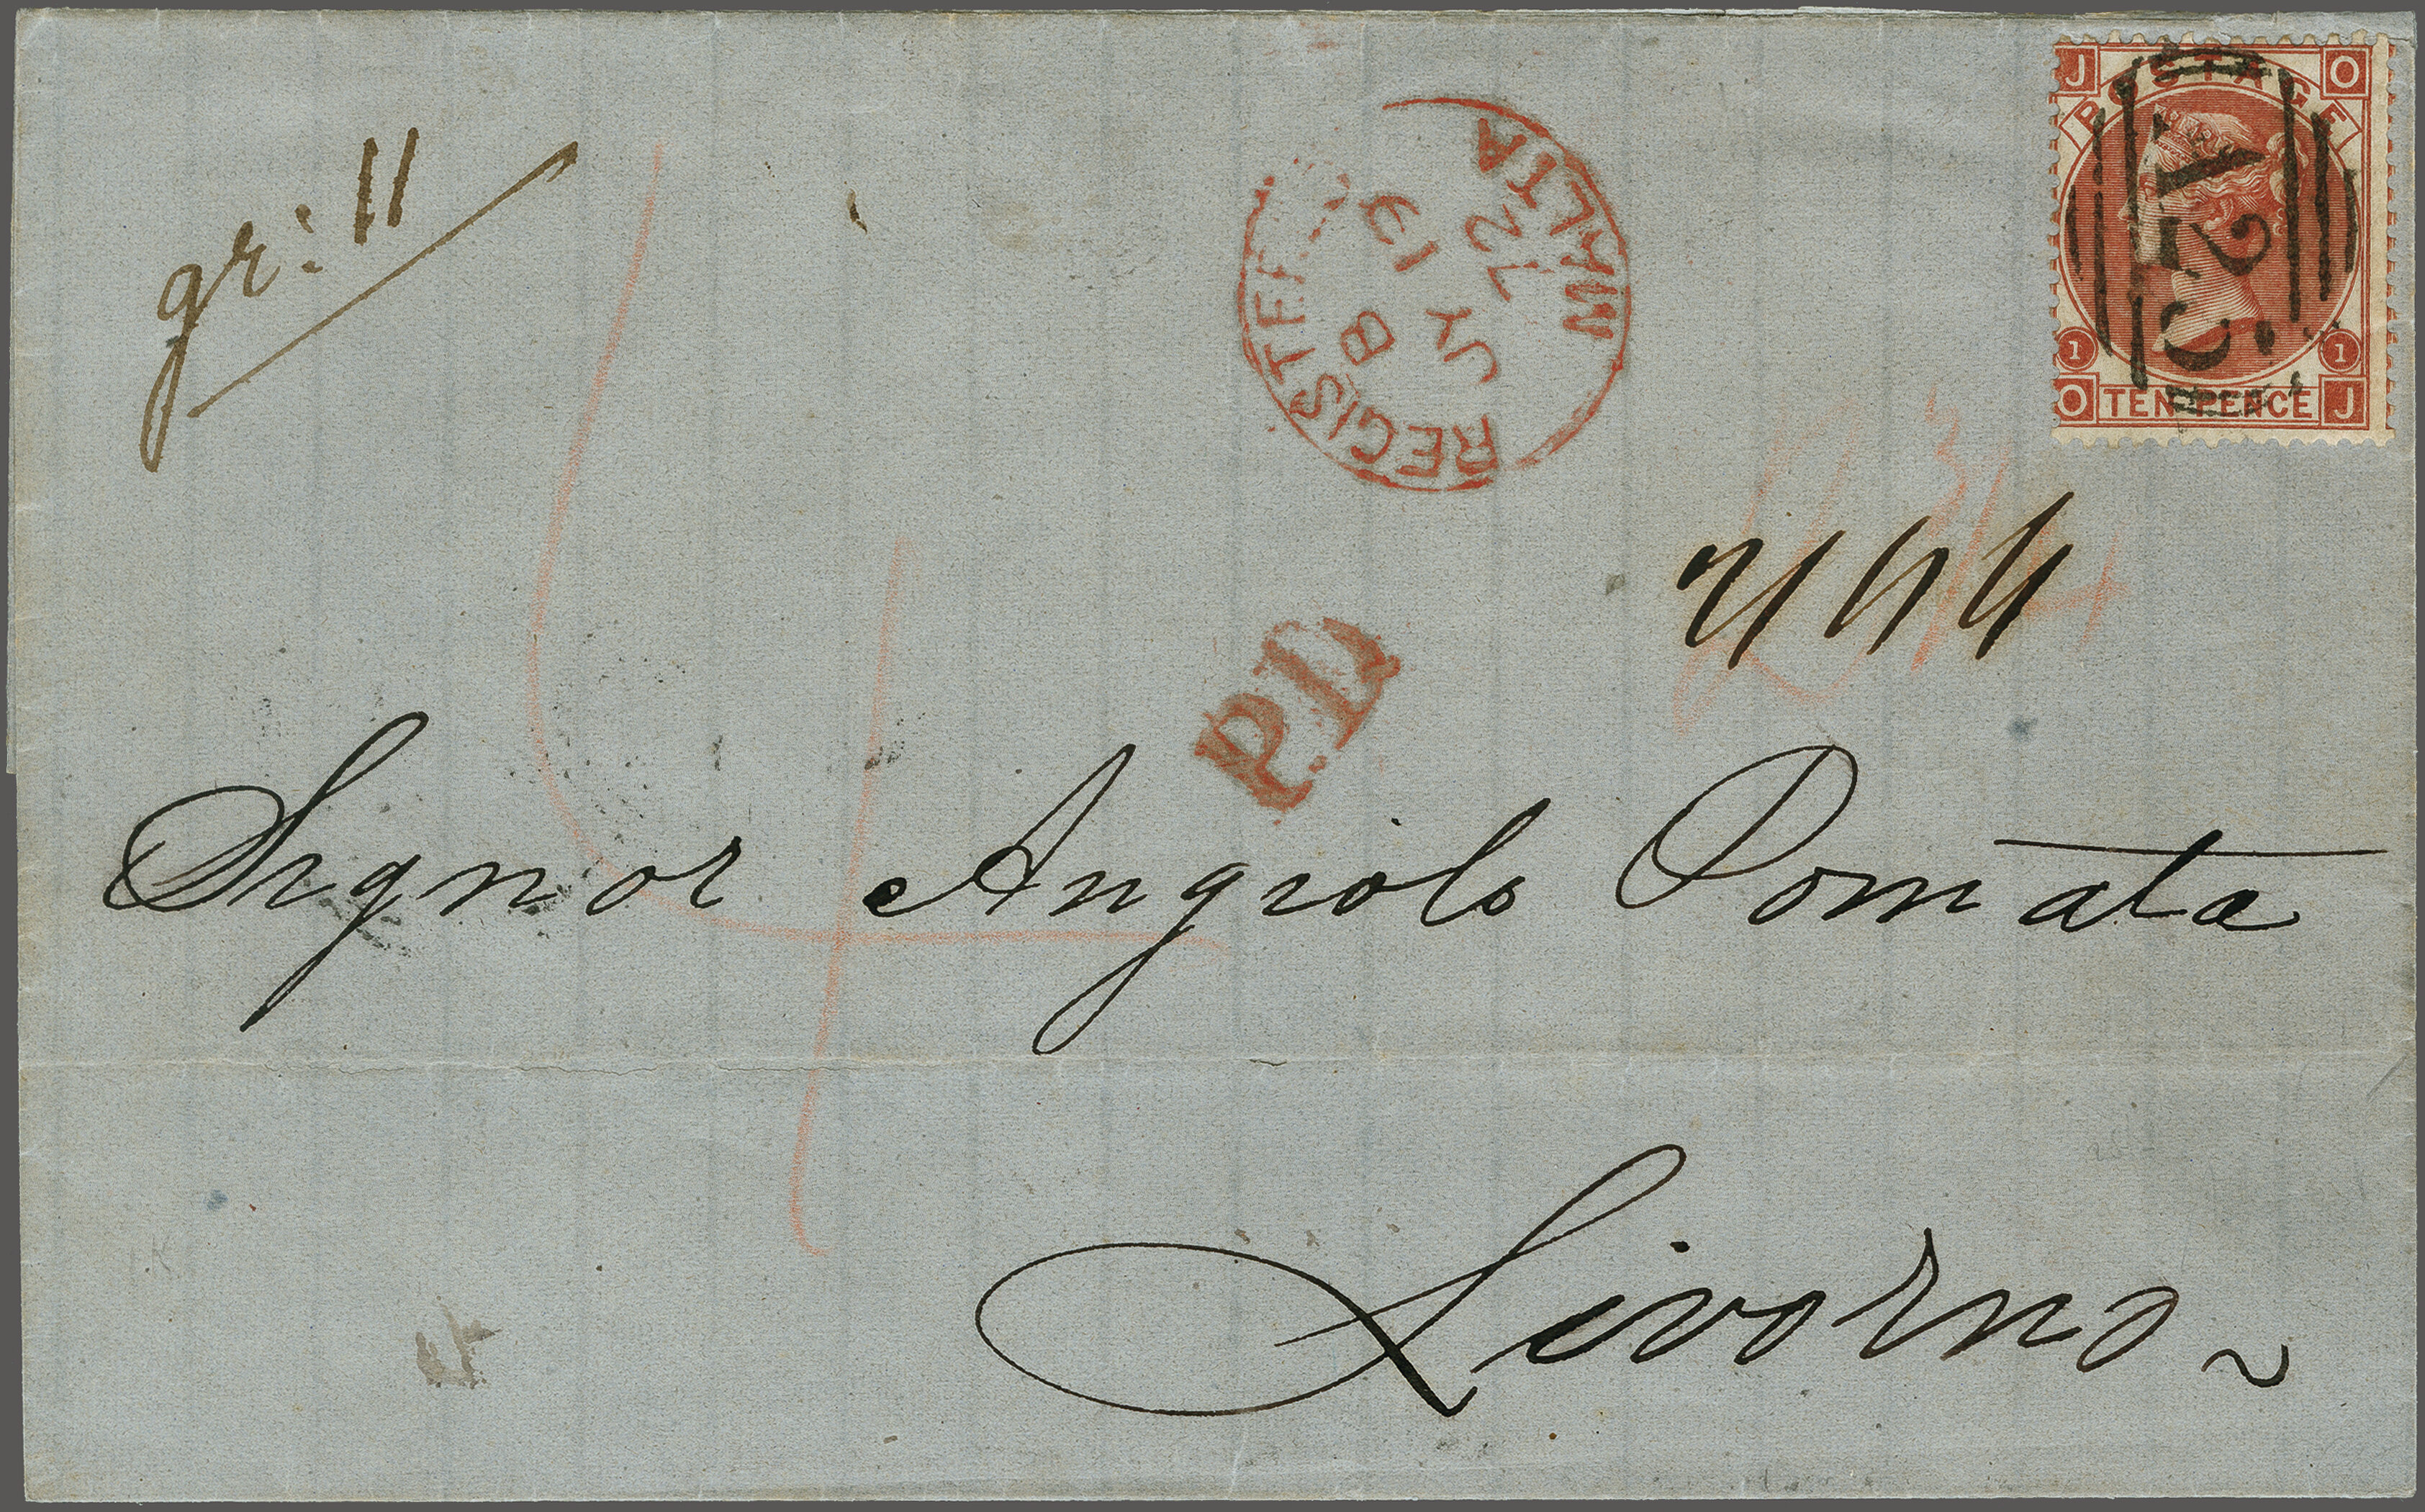 gr: 11
J POSTAGE O
A25
1 1
O TEN PENCE J
REGISTERED MALTA
B
JY 13
72
P.D.
Signor Angiolo Pomata
Livorno